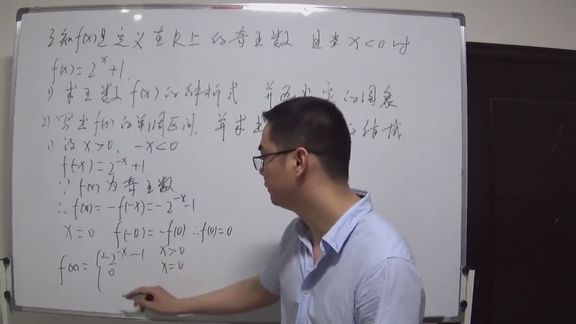 已知f(x)是定义在R上的奇函数,且当x<0时
f(x)=2^x+1.
1) 求函数f(x)的解析式,并画出它的图象
2) 写出f(x)的单调区间,并求出 的值域
1) 设x>0, -x<0
f(-x)=2^{-x}+1
∵f(x)为奇函数
∴f(x)=-f(-x)=-2^{-x}-1
x=0 f(-0)=-f(0) ∴f(0)=0
f(x)={-2^{-x}-1 x>0
0 x=0